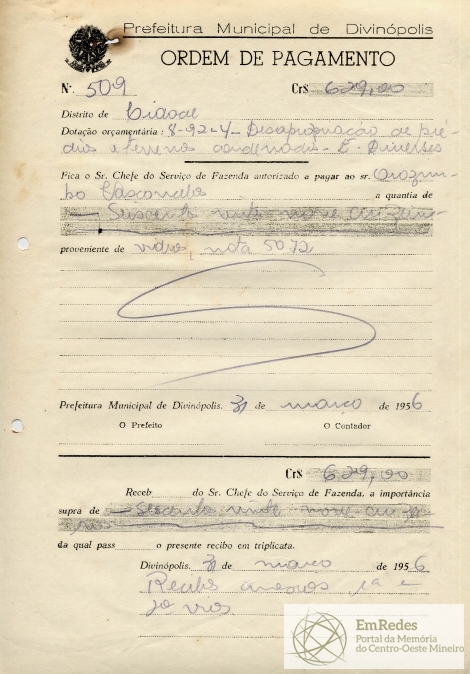 Prefeitura Municipal de Divinópolis
ORDEM DE PAGAMENTO
N.º 509 Cr$ 629,00
Distrito de Cidade
Dotação orçamentária : 8-92-4 - Desapropriação de pré-
dios e terrenos condenados - E - Diversos
Fica o Sr. Chefe do Serviço de Fazenda autorizado a pagar ao sr. Orozim-
bo Vasconcelos a quantia de
Seiscentos vinte nove cruzeiros
proveniente de vidros nota 5072
Prefeitura Municipal de Divinópolis. 31 de março de 1956
O Prefeito O Contador
Cr$ 629,00
Receb do Sr. Chefe do Serviço de Fazenda, a importância
supra de Seiscentos vinte nove cruzei-
ros
da qual pass o presente recibo em triplicata.
Divinópolis. 31 de março de 1956
Recibo anexos 1ª e
vias
EmRedes
Portal da Memória
do Centro-Oeste Mineiro